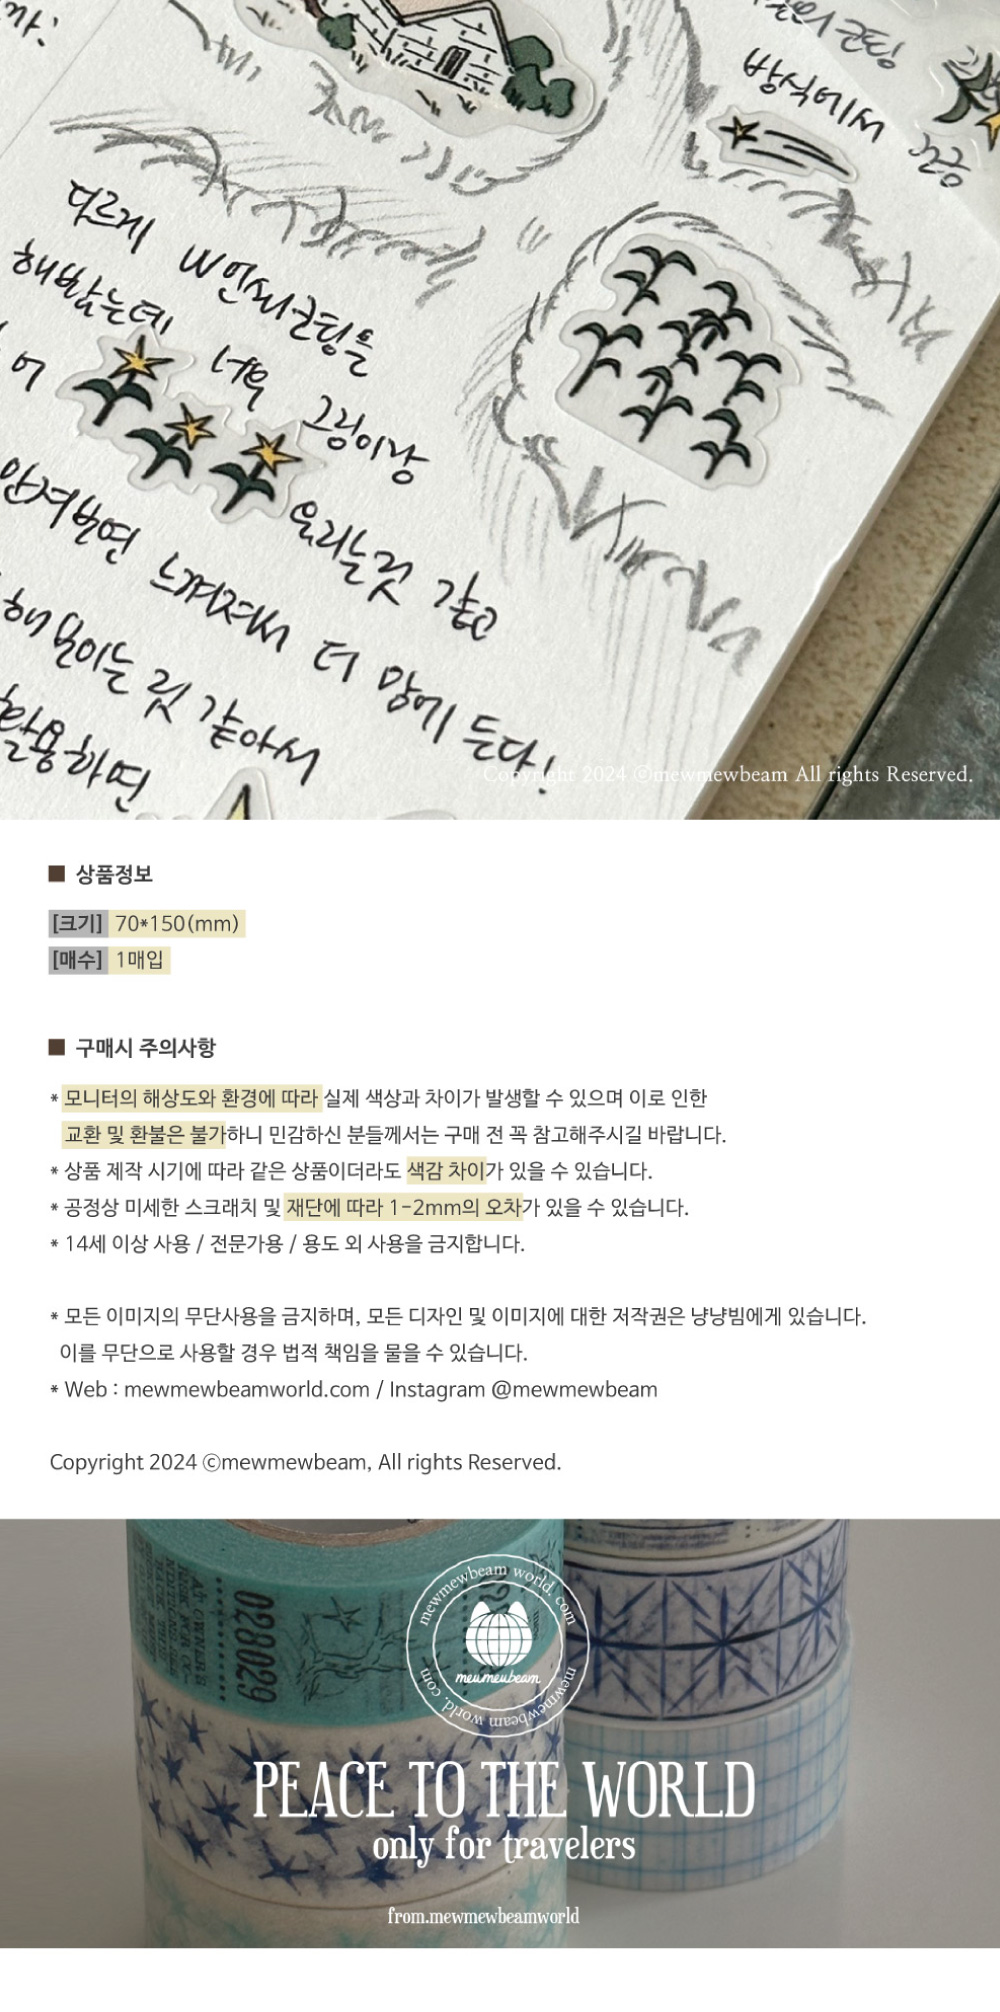 까.
방식에서 조금
다르게 UV인쇄 코팅을
해봤는데 너무 그림이랑
어
안겨보면 느껴져서 더 맘에 든다!
해 보이는 것 같아서
활용하면
Copyright 2024 ⓒmewmewbeam All rights Reserved.
■ 상품정보
[크기] 70*150(mm)
[매수] 1매입
■ 구매시 주의사항
* 모니터의 해상도와 환경에 따라 실제 색상과 차이가 발생할 수 있으며 이로 인한
교환 및 환불은 불가하니 민감하신 분들께서는 구매 전 꼭 참고해주시길 바랍니다.
* 상품 제작 시기에 따라 같은 상품이더라도 색감 차이가 있을 수 있습니다.
* 공정상 미세한 스크래치 및 재단에 따라 1-2mm의 오차가 있을 수 있습니다.
* 14세 이상 사용 / 전문가용 / 용도 외 사용을 금지합니다.
* 모든 이미지의 무단사용을 금지하며, 모든 디자인 및 이미지에 대한 저작권은 냥냥빔에게 있습니다.
이를 무단으로 사용할 경우 법적 책임을 물을 수 있습니다.
* Web : mewmewbeamworld.com / Instagram @mewmewbeam
Copyright 2024 ⓒmewmewbeam, All rights Reserved.
028029
mewmewbeam world. com
mewmewbeam
mewmewbeam world. com
PEACE TO THE WORLD
only for travelers
from.mewmewbeamworld